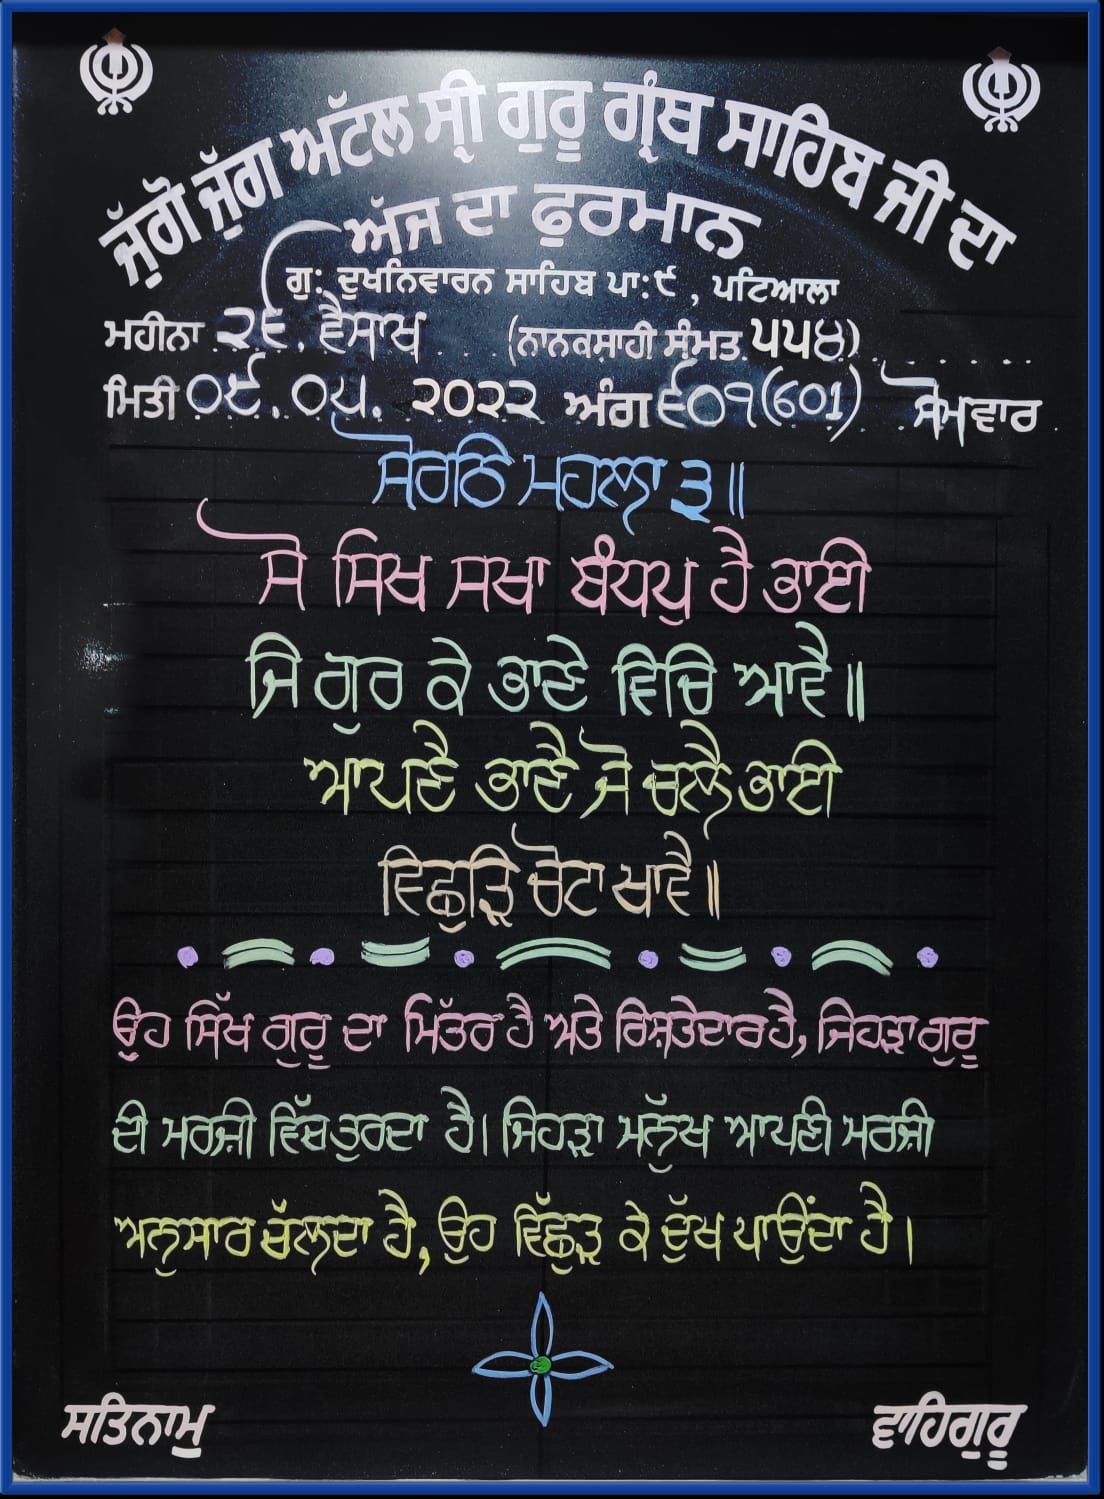 ਜੁੱਗੋ ਜੁੱਗ ਅਟੱਲ ਸ੍ਰੀ ਗੁਰੂ ਗ੍ਰੰਥ ਸਾਹਿਬ ਜੀ ਦਾ
ਅੱਜ ਦਾ ਫੁਰਮਾਨ
ਗੁ: ਦੁਖਨਿਵਾਰਨ ਸਾਹਿਬ ਪਾ:੯, ਪਟਿਆਲਾ
ਮਹੀਨਾ ੨੬. ਵੈਸਾਖ (ਨਾਨਕਸ਼ਾਹੀ ਸੰਮਤ ੫੫੪)
ਮਿਤੀ ੦੯. ੦੫. ੨੦੨੨ ਅੰਗ ੬੦੧(601) ਸੋਮਵਾਰ
ਸੋਰਠਿ ਮਹਲਾ ੩॥
ਸੋ ਸਿਖ ਸਖਾ ਬੰਧਪੁ ਹੈ ਭਾਈ
ਜਿ ਗੁਰ ਕੇ ਭਾਣੇ ਵਿਚਿ ਆਵੈ॥
ਆਪਣੈ ਭਾਣੈ ਜੋ ਚਲੈ ਭਾਈ
ਵਿਛੁੜਿ ਚੋਟਾ ਖਾਵੈ॥
ਉਹ ਸਿੱਖ ਗੁਰੂ ਦਾ ਮਿੱਤਰ ਹੈ ਅਤੇ ਰਿਸ਼ਤੇਦਾਰ ਹੈ, ਜਿਹੜਾ ਗੁਰੂ
ਦੀ ਮਰਜ਼ੀ ਵਿੱਚ ਤੁਰਦਾ ਹੈ। ਜਿਹੜਾ ਮਨੁੱਖ ਆਪਣੀ ਮਰਜ਼ੀ
ਅਨੁਸਾਰ ਚੱਲਦਾ ਹੈ, ਉਹ ਵਿੱਛੁੜ ਕੇ ਦੁੱਖ ਪਾਉਂਦਾ ਹੈ।
ਸਤਿਨਾਮੁ ਵਾਹਿਗੁਰੂ